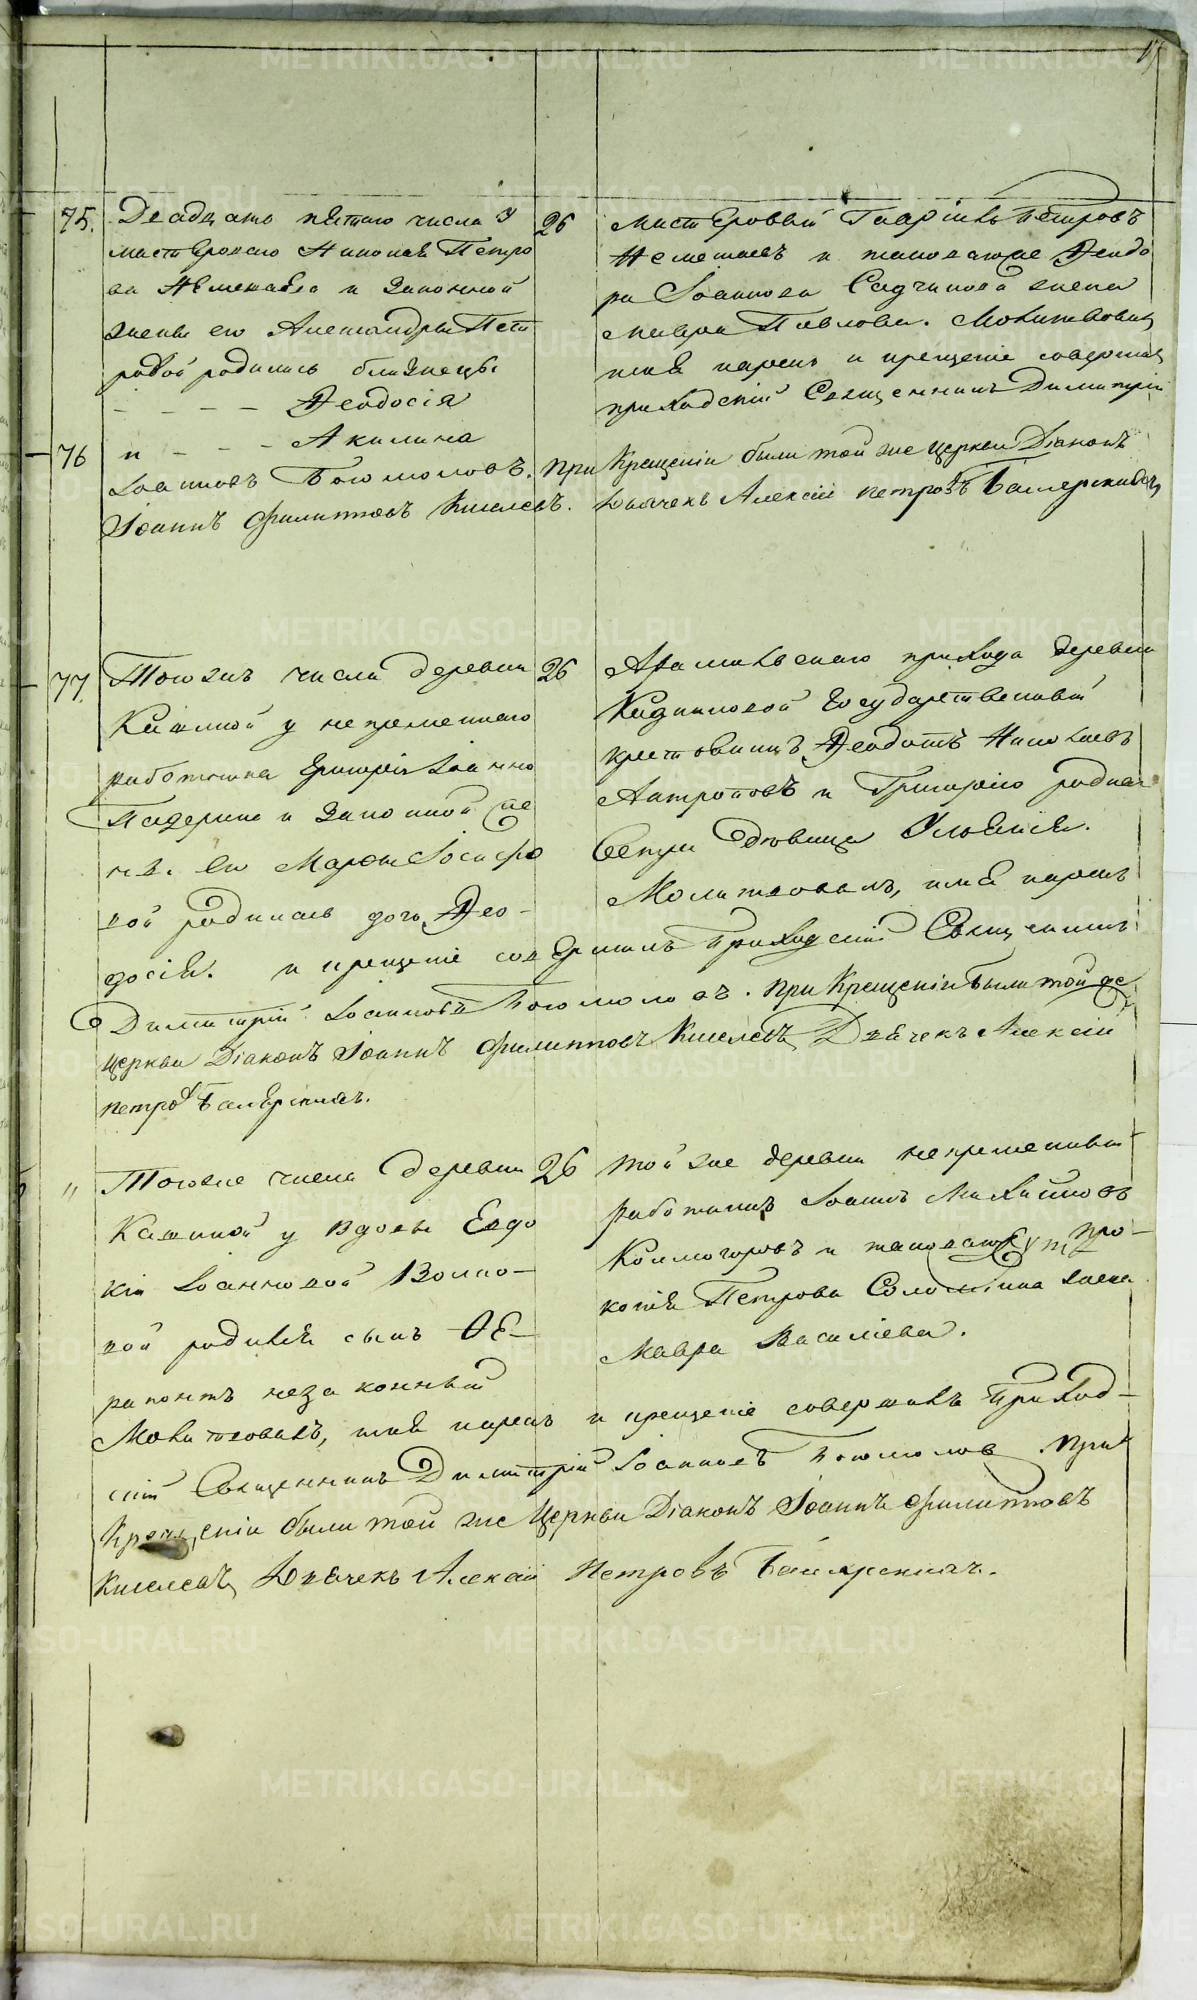 75. Двадцать пятаго числа у
мастероваго Николая Петро
ва и законной
жены его Александры Пет
ровой родились близнецы
Ѳеодосія
76 и Акилина
26
мастеровый Гавріилъ Петровъ
и таковагоже Ѳеодо
ра Іоаннова жена
Мавра Павлова. Молитвовалъ,
имя нарекъ и крещеніе совершилъ
приходскій Священникъ Димитрій
Іоанновъ Богомоловъ. при Крещеніи были той же церкви Діаконъ
Іоаннъ Филипповъ Киселевъ. Дьячекъ Алексій петровъ
77 Тогожъ числа деревни
Кашиной у непременнаго
работника Григорія Іоанно
Падерина и законной же
ны его Марѳы Іосифо
вой родилась дочь Ѳео-
досія.
26
Арамильскаго прихода деревни
Кадниковой Государственный
крестьянинъ Ѳеодотъ Николаевъ
Антроповъ и Григорію родная
Сестра дѣвица
Молитвовалъ, имя нарекъ
и крещеніе совершилъ Приходскій Священникъ
Димитрій Іоанновъ Богомоловъ. при Крещеніи были той же
церкви Діаконъ Іоаннъ Филипповъ Киселевъ, Дьячекъ Алексіи
петровъ
" Тогоже числа деревни
Кашиной у вдовы Евдо
кіи Іоанновой Волко-
вой родился сынъ Ѳе-
рапонтъ незаконный
26
той же деревни непременный
работникъ Іоаннъ Михайловъ
Колмогоровъ и таковагоже Про-
копія Петрова жена
Мавра Василіева.
Молитвовалъ, имя нарекъ и крещеніе совершилъ Приход-
скій Священникъ Димитрій Іоанновъ Богомоловъ. При
Крещеніи были той же Церкви Діаконъ Іоаннъ Филипповъ
Киселевъ, Дьячекъ Алексій Петровъ
METRIKI.GASO-URAL.RU